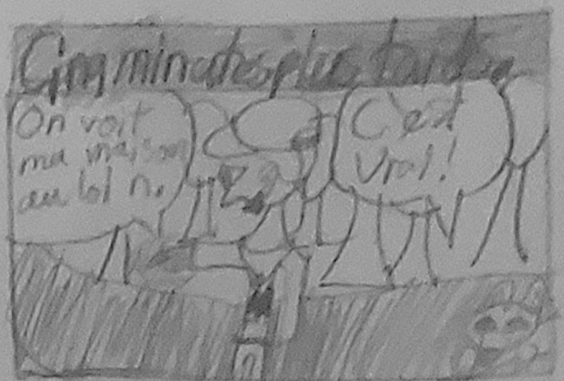 Cinq minutes plus tard
On voit
ma maison
au loin.
C'est
vrai!